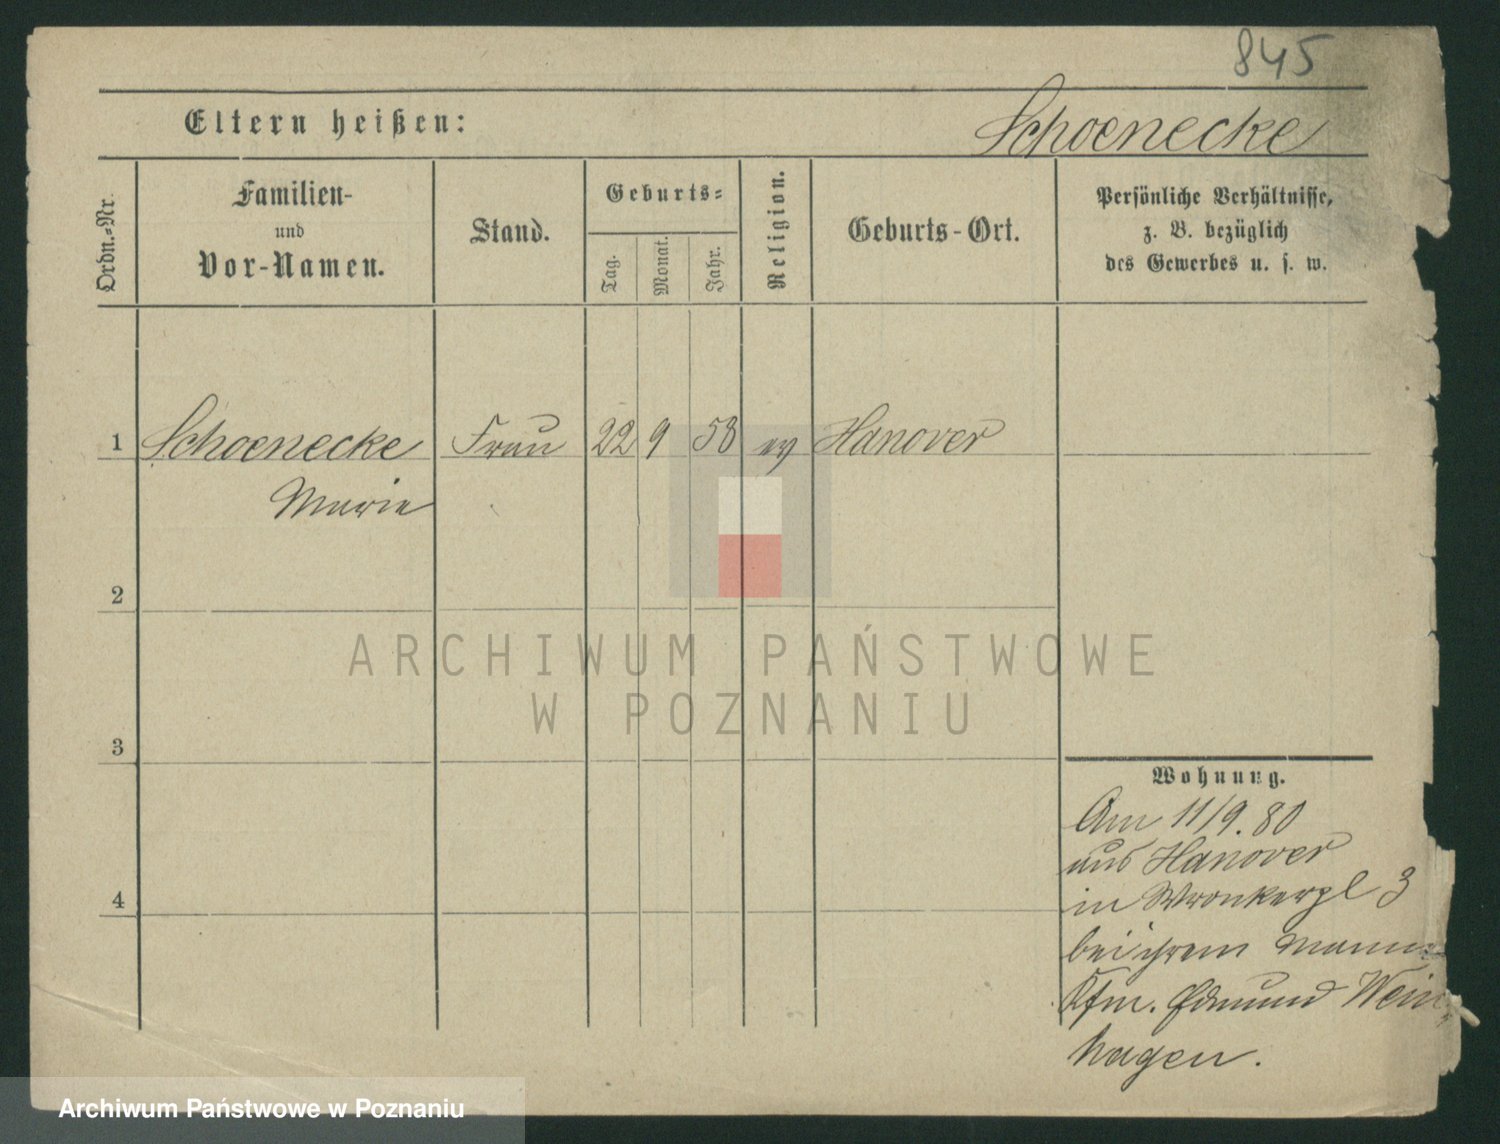 845
Eltern heißen:
Schoenecke
Ordn.-Nr.
Familien-
und
Vor-Namen.
Stand.
Geburts-
Tag.
Monat.
Jahr.
Religion.
Geburts-Ort.
Persönliche Verhältnisse,
z. B. bezüglich
des Gewerbes u. s. w.
1 Schoenecke Frau 22 9 58 ev Hanover
Marie
2
3
4
Wohnung.
Am 11/9. 80
aus Hanover
in Wronkerpl 3
bei ihrem Mann
Kfm. Edmund Wein
hagen.
ARCHIWUM PAŃSTWOWE
W POZNANIU
Archiwum Państwowe w Poznaniu